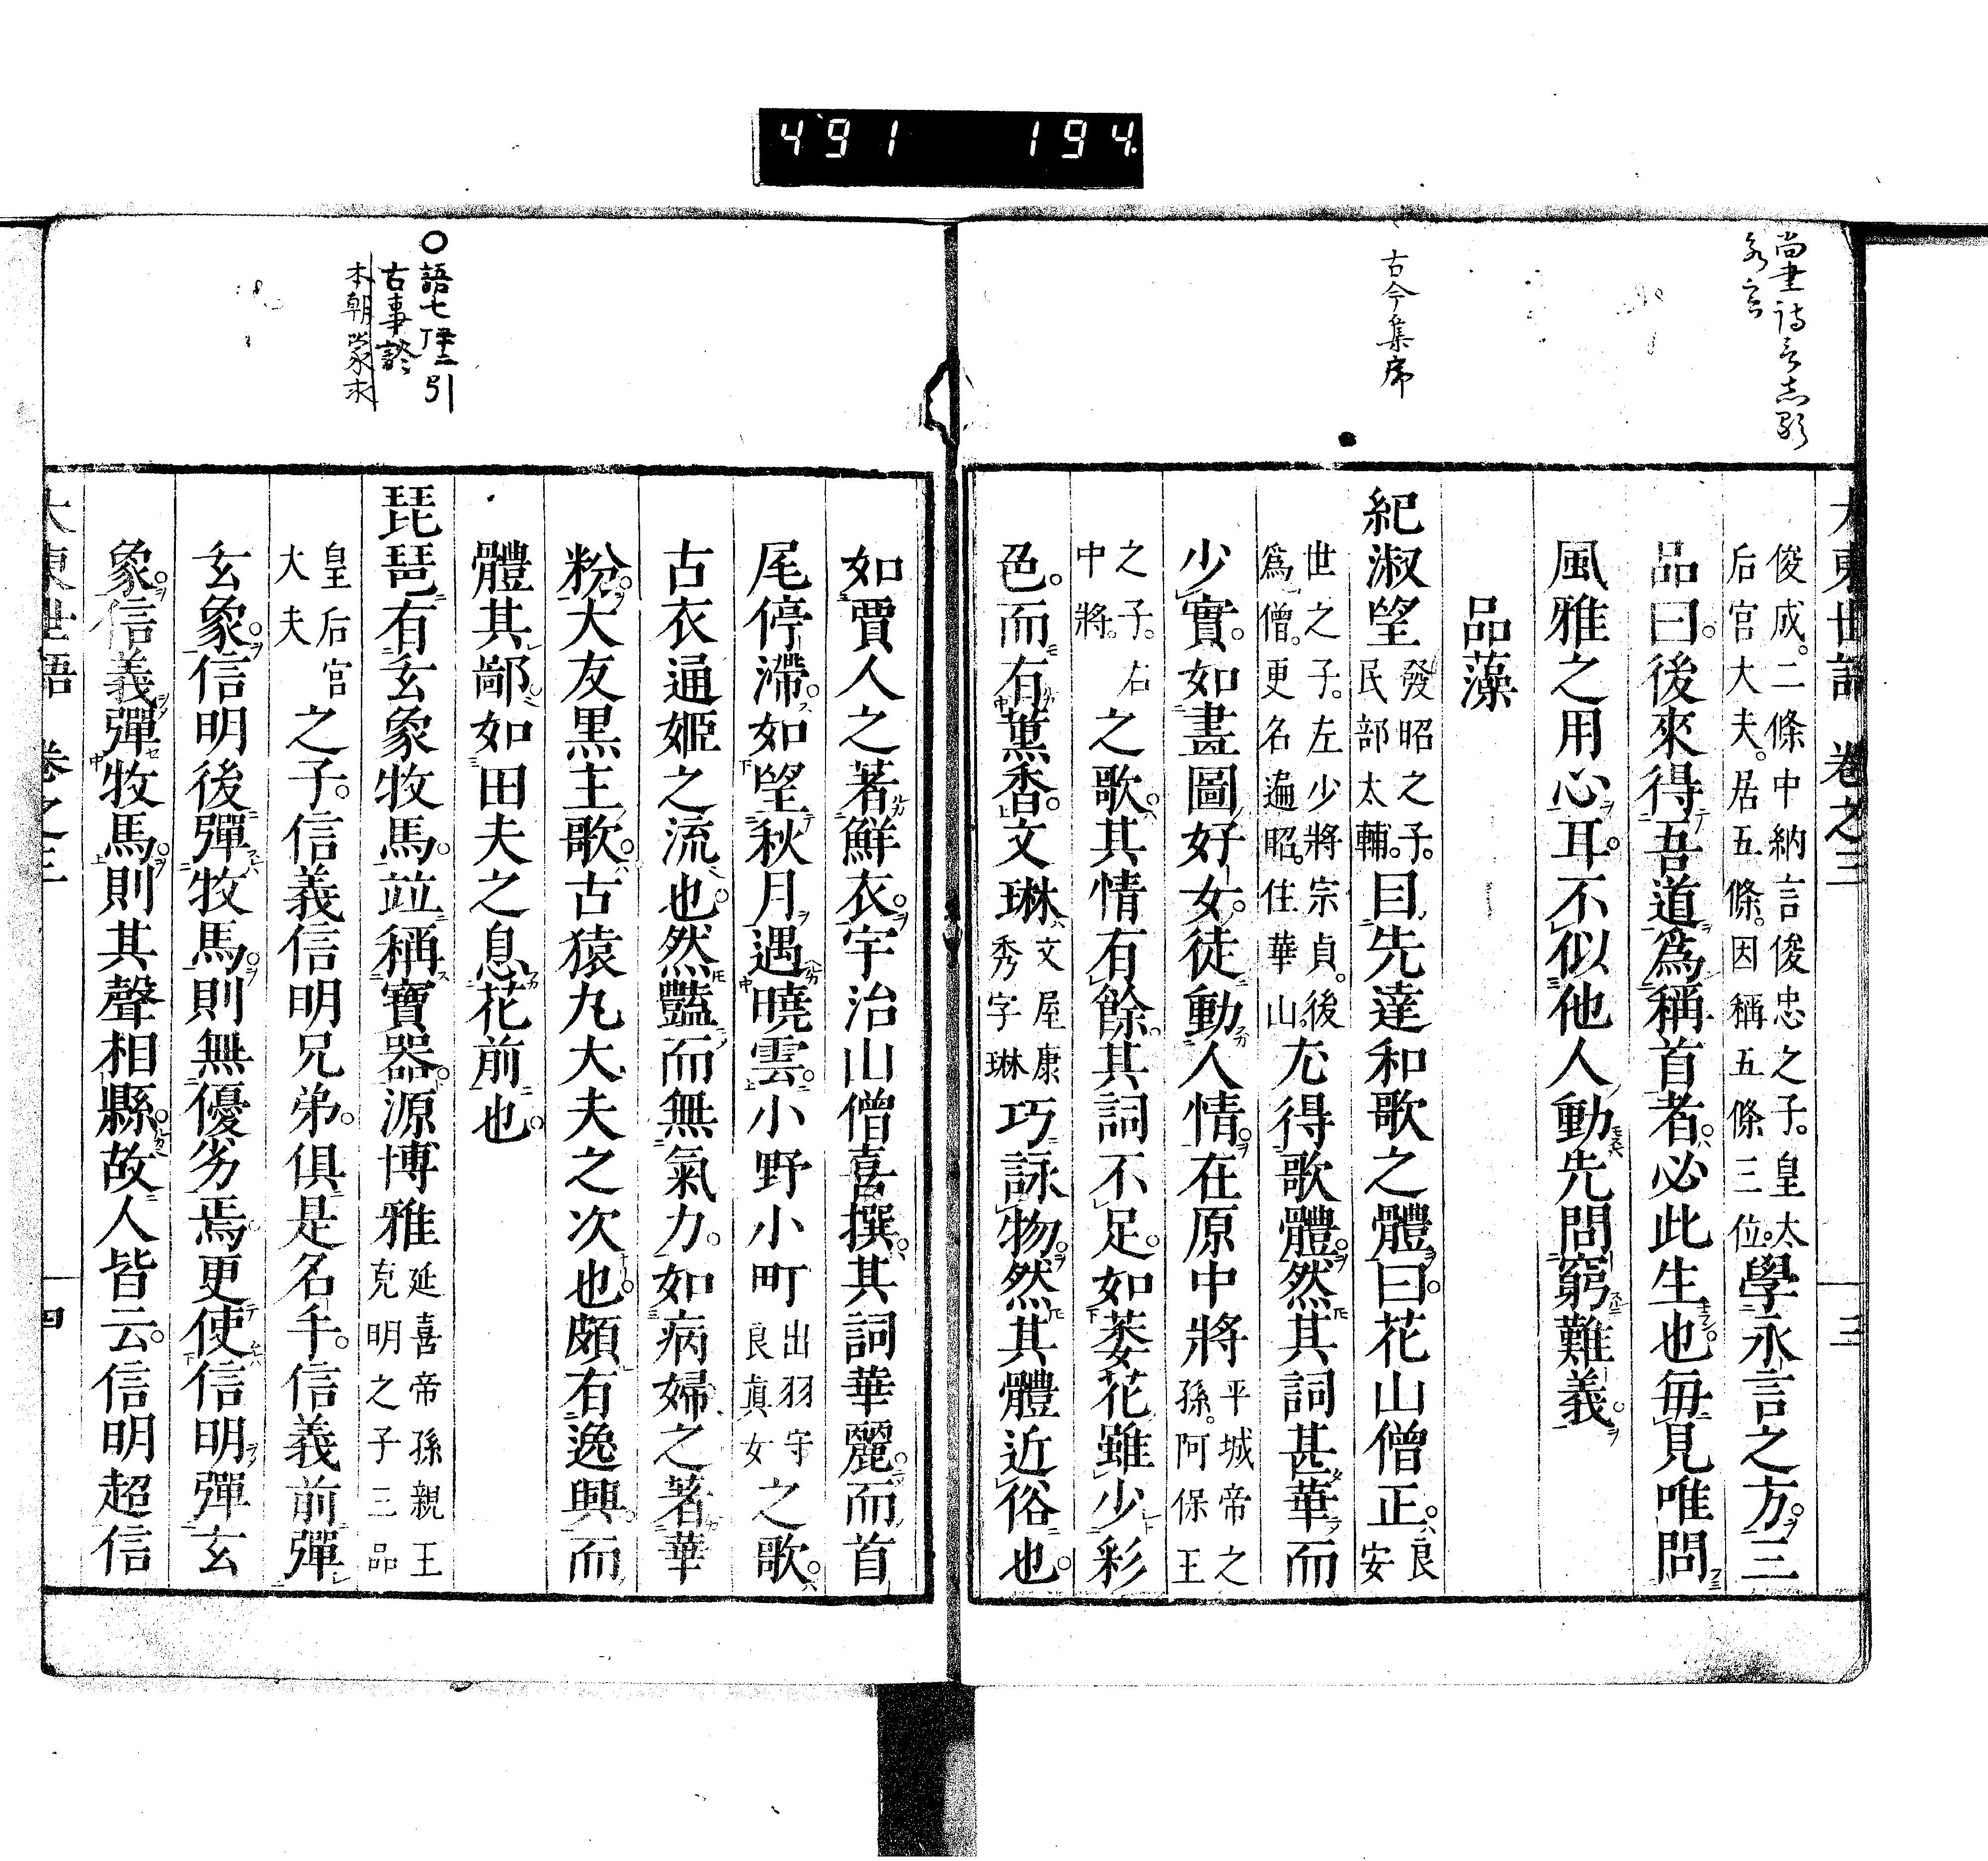 491 194
尚書詩言志歌
永言
古今集序
大東世語 卷之三 三
俊成。二條中納言俊忠之子。皇太
后宮大夫。居五條。因稱五條三位。學永言之方。三
品曰。後來得吾道爲稱首者。必此生也每見唯問
風雅之用心耳。不似他人動先問窮難義。
品藻
紀淑望發昭之子。民部太輔。目先達和歌之體曰。花山僧正。良安
世之子。左少將宗貞。後
爲僧。更名遍昭。住華山。尤得歌體。然其詞甚華而
少實。如畫圖好女。徒動人情。在原中將平城帝之孫。阿保王
之子。右
中將。之歌。其情有餘。其詞不足。如萎花雖少彩
色。而有薰香。文琳文屋康秀字琳巧詠物。然其體近俗也。
如賈人之著鮮衣。宇治山僧喜撰。其詞華麗。而首
尾停滯。如望秋月遇曉雲。小野小町出羽守良眞女之歌。
古衣通姬之流也。然豔而無氣力。如病婦之著華
粉。大友黒主歌。古猿丸大夫之次也。頗有逸興。而
體其鄙。如田夫之息花前也。
琵琶有玄象牧馬。竝稱寶器。源博雅延喜帝孫親王克明之子三品
皇后宮
大夫之子。信義信明兄弟。俱是名手。信義前彈
玄象。信明後彈牧馬。則無優劣焉。更使信明彈玄
象。信義彈牧馬。則其聲相縣。故人皆云。信明超信
大東世語 卷之三 四
○語七 引
古事談
本朝蒙求